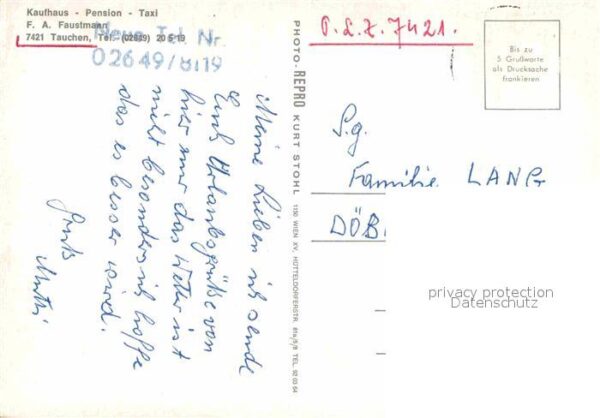 Kaufhaus - Pension - Taxi
F. A. Faustmann
7421 Tauchen, Tel. (02649) 20 5 19
Neue Tel. Nr.
02649/8119
Meine Lieben ich sende
Euch Urlaubsgrüße von
hier nur das Wetter ist
nicht besonders ich hoffe
das es besser wird.
Gruß
Mutti
PHOTO-REPRO KURT STOHL
1150 WIEN XV, HÜTTELDORFERSTR.
P.L.Z. 7421.
Bis zu
5 Grußworte
als Drucksache
frankieren
Sg.
Familie LANG
DÖB.
privacy protection
Datenschutz